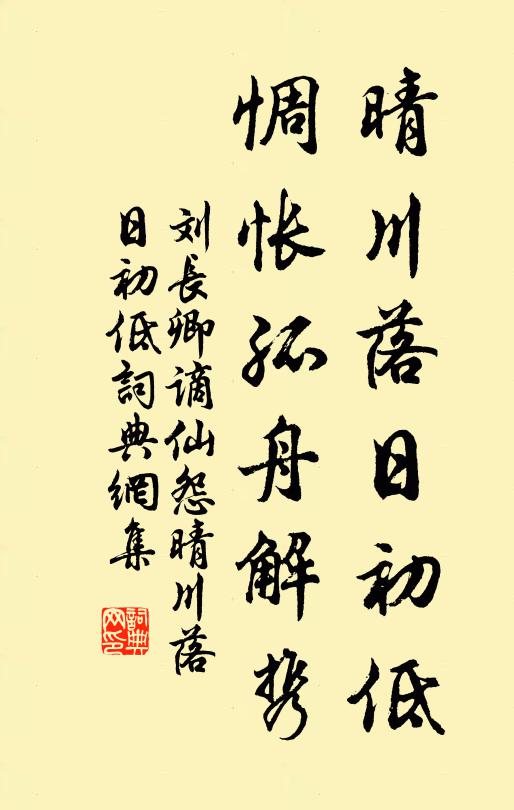 晴川落日初低
惆怅孤舟解携
刘長卿謫仙怨晴川落
日初低詞典網集
詞典
网印